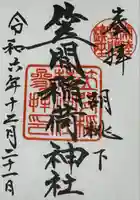 奉拝
胡桃下
笠間稲荷神社
令和六年十二月二十一日